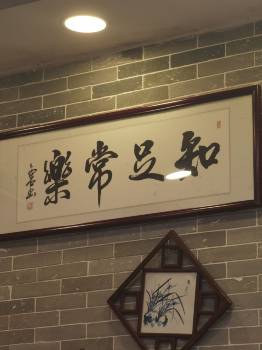 知足常樂